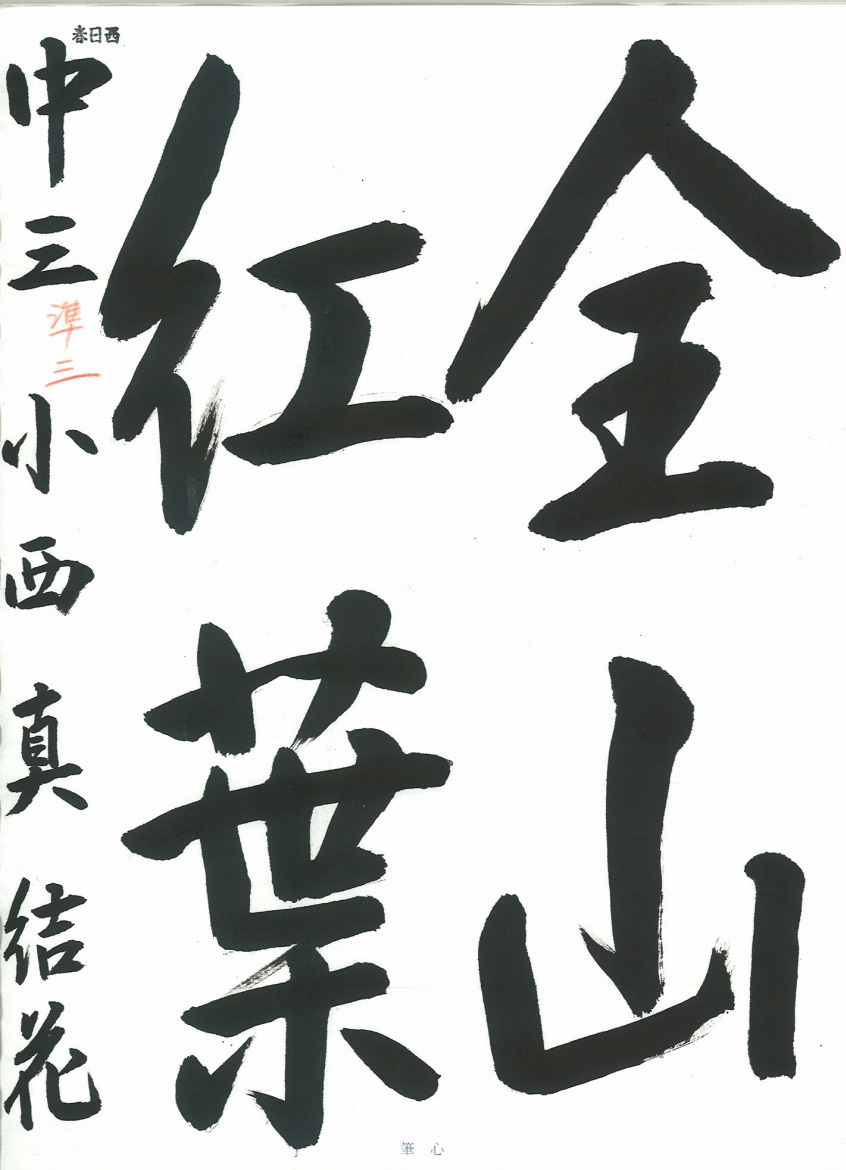 全山
紅葉
西日春
中三 小西真結花
準三
心筆